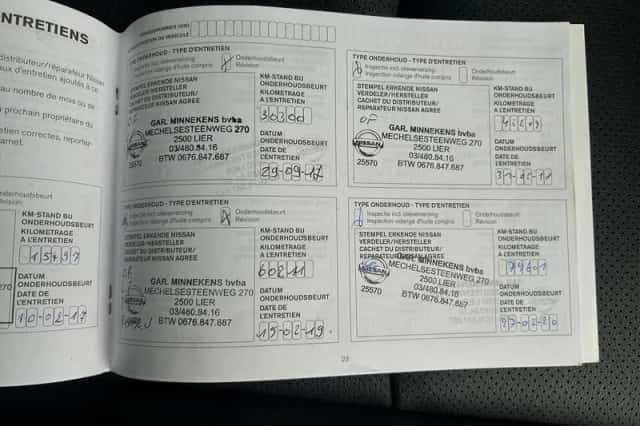 ENTRETIENS
distributeur/réparateur Nissan
au nombre de mois ou de
prochain propriétaire du
KM-STAND BIJ
ONDERHOUDSBEURT
KILOMETRAGE
A L'ENTRETIEN
15497
DATUM
ONDERHOUDSBEURT
DATE DE
L'ENTRETIEN
10-02-17
TYPE ONDERHOUD - TYPE D'ENTRETIEN
Inspectie incl. olieverversing
Inspection vidange d'huile compris
Onderhoudsbeurt
Révision
STEMPEL ERKENDE NISSAN
VERDELER/HERSTELLER
CACHET DU DISTRIBUTEUR/
REPARATEUR NISSAN AGREE
OF
GAR. MINNEKENS bvba
MECHELSESTEENWEG 270
2500 LIER
03/480.84.16
BTW 0676.847.687
NISSAN
25570
KM-STAND BIJ
ONDERHOUDSBEURT
KILOMETRAGE
A L'ENTRETIEN
30300
DATUM
ONDERHOUDSBEURT
DATE DE
L'ENTRETIEN
29-09-17
TYPE ONDERHOUD - TYPE D'ENTRETIEN
Inspectie incl. olieverversing
Inspection vidange d'huile compris
Onderhoudsbeurt
Révision
STEMPEL ERKENDE NISSAN
VERDELER/HERSTELLER
CACHET DU DISTRIBUTEUR/
REPARATEUR NISSAN AGREE
OF
GAR. MINNEKENS bvba
MECHELSESTEENWEG 270
2500 LIER
03/480.84.16
BTW 0676.847.687
NISSAN
25570
KM-STAND BIJ
ONDERHOUDSBEURT
KILOMETRAGE
A L'ENTRETIEN
DATUM
ONDERHOUDSBEURT
DATE DE
L'ENTRETIEN
TYPE ONDERHOUD - TYPE D'ENTRETIEN
Inspectie incl. olieverversing
Inspection vidange d'huile compris
Onderhoudsbeurt
Révision
STEMPEL ERKENDE NISSAN
VERDELER/HERSTELLER
CACHET DU DISTRIBUTEUR/
REPARATEUR NISSAN AGREE
GAR. MINNEKENS bvba
MECHELSESTEENWEG 270
2500 LIER
03/480.84.16
BTW 0676.847.687
KM-STAND BIJ
ONDERHOUDSBEURT
KILOMETRAGE
A L'ENTRETIEN
60211
DATUM
ONDERHOUDSBEURT
DATE DE
L'ENTRETIEN
15-02-19
TYPE ONDERHOUD - TYPE D'ENTRETIEN
Inspectie incl. olieverversing
Inspection vidange d'huile compris
Onderhoudsbeurt
Révision
STEMPEL ERKENDE NISSAN
VERDELER/HERSTELLER
CACHET DU DISTRIBUTEUR/
GAR. MINNEKENS bvba
MECHELSESTEENWEG 270
2500 LIER
03/480.84.16
BTW 0676.847.687
NISSAN
25570
KM-STAND BIJ
ONDERHOUDSBEURT
KILOMETRAGE
A L'ENTRETIEN
DATUM
ONDERHOUDSBEURT
DATE DE
L'ENTRETIEN
23